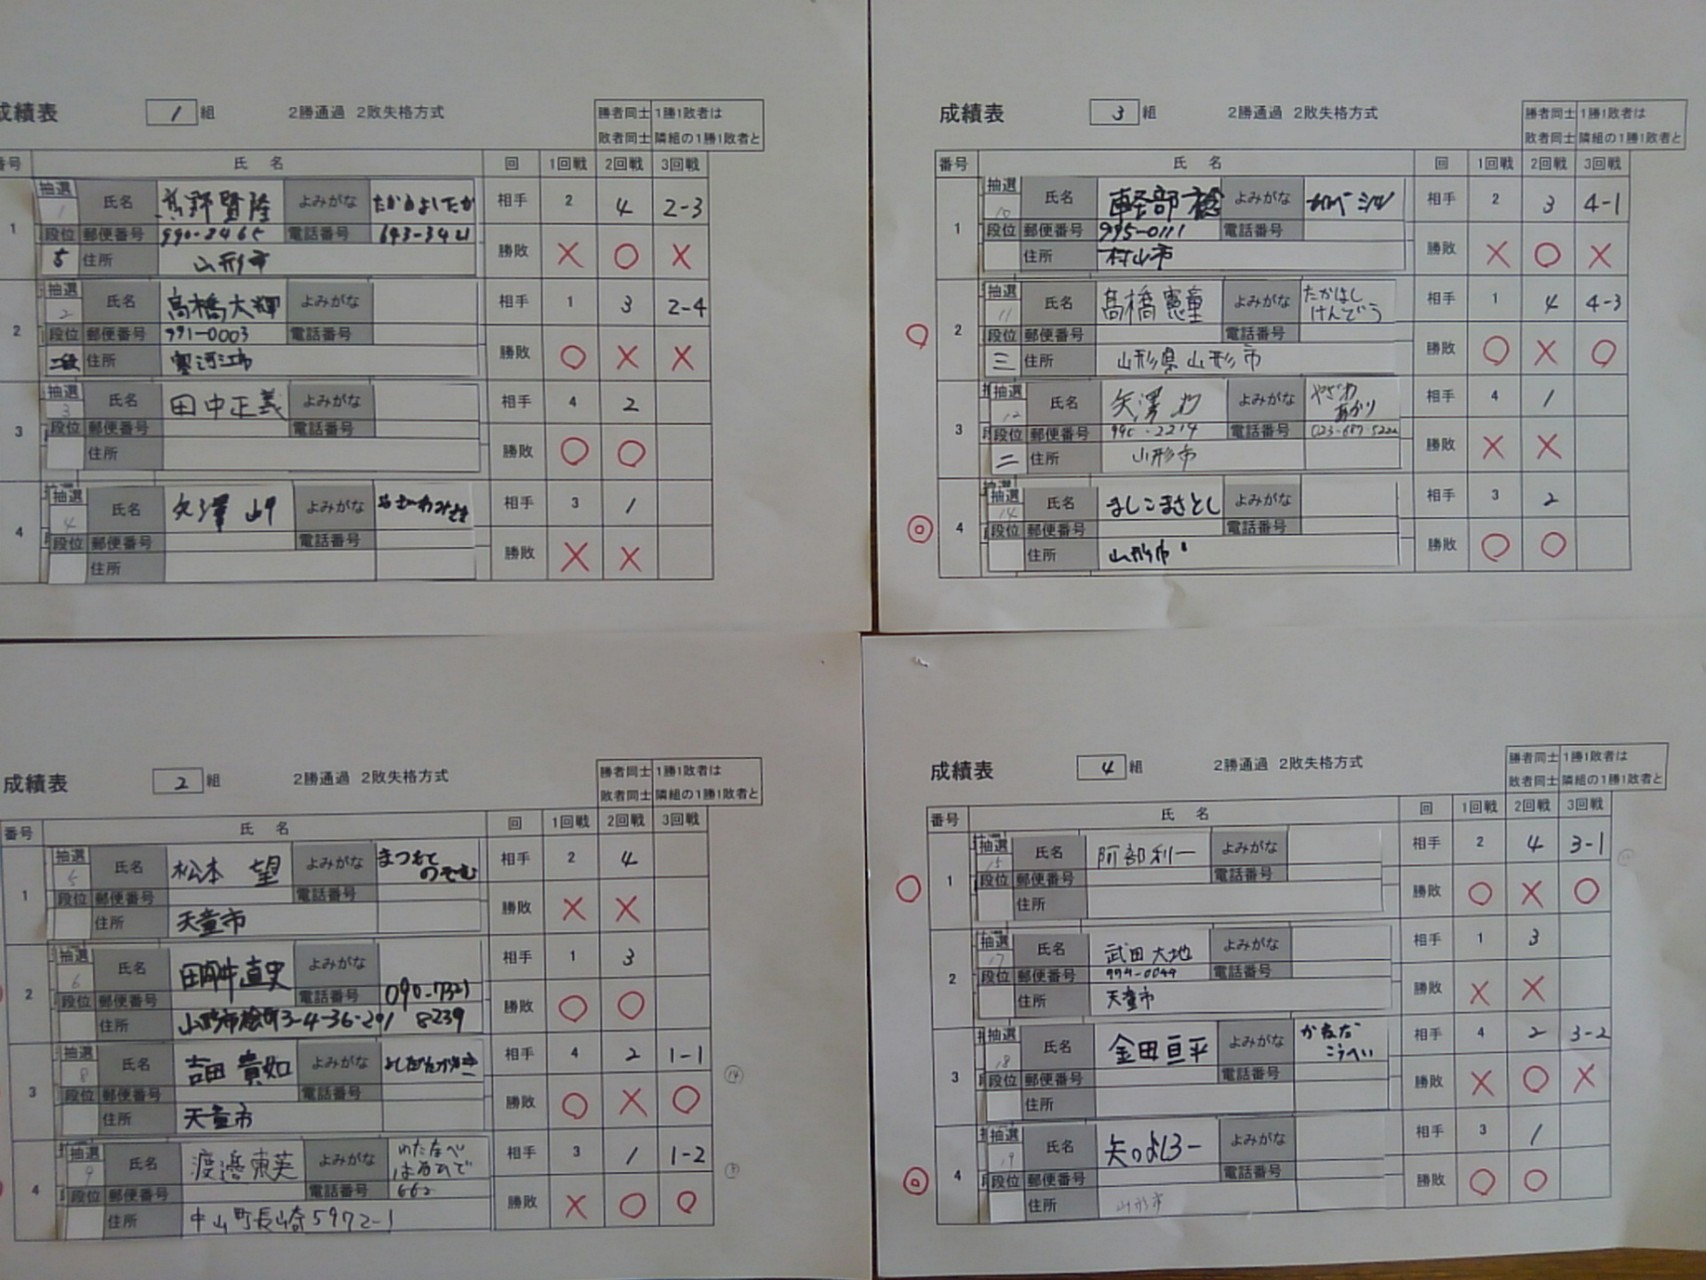 成績表 1組 2勝通過 2敗失格方式
勝者同士 1勝1敗者は
敗者同士 隣組の1勝1敗者と
番号 氏 名 回 1回戦 2回戦 3回戦
1 抽選 1 氏名 髙野賢隆 よみがな たかのよしたか 相手 2 4 2-3
段位 郵便番号 990-2465 電話番号 643-3421
5 住所 山形市 勝敗 × ○ ×
2 抽選 2 氏名 高橋大輝 よみがな 相手 1 3 2-4
段位 郵便番号 991-0003 電話番号
二段 住所 寒河江市 勝敗 ○ × ×
3 抽選 3 氏名 田中正義 よみがな 相手 4 2
段位 郵便番号 電話番号
住所 勝敗 ○ ○
4 抽選 4 氏名 矢澤 よみがな 相手 3 1
段位 郵便番号 電話番号
住所 勝敗 × ×
成績表 2組 2勝通過 2敗失格方式
勝者同士 1勝1敗者は
敗者同士 隣組の1勝1敗者と
番号 氏 名 回 1回戦 2回戦 3回戦
1 抽選 5 氏名 松本 望 よみがな まつもと のぞむ 相手 2 4
段位 郵便番号 電話番号
住所 天童市 勝敗 × ×
2 抽選 6 氏名 田中直史 よみがな 相手 1 3
段位 郵便番号 電話番号 090-7321
住所 山形市桧町3-4-36-201 8239 勝敗 ○ ○
3 抽選 8 氏名 吉田 貴如 よみがな 相手 4 2 1-1
段位 郵便番号 電話番号
住所 天童市 勝敗 ○ × ○
4 抽選 9 氏名 渡邉東英 よみがな わたなべ はるひで 相手 3 1 1-2
段位 郵便番号 電話番号 662
住所 中山町長崎5972-1 勝敗 × ○ ○
成績表 3組 2勝通過 2敗失格方式
勝者同士 1勝1敗者は
敗者同士 隣組の1勝1敗者と
番号 氏 名 回 1回戦 2回戦 3回戦
1 抽選 10 氏名 軽部 稔 よみがな 相手 2 3 4-1
段位 郵便番号 995-0111 電話番号
住所 村山市 勝敗 × ○ ×
2 抽選 11 氏名 髙橋憲童 よみがな たかはし けんどう 相手 1 4 4-3
段位 郵便番号 電話番号
三 住所 山形県山形市 勝敗 ○ × ○
3 抽選 12 氏名 矢澤 灯 よみがな やざわ あかり 相手 4 1
段位 郵便番号 990-2214 電話番号
二 住所 山形市 勝敗 × ×
4 抽選 14 氏名 ましこまさとし よみがな 相手 3 2
段位 郵便番号 電話番号
住所 山形市 勝敗 ○ ○
成績表 4組 2勝通過 2敗失格方式
勝者同士 1勝1敗者は
敗者同士 隣組の1勝1敗者と
番号 氏 名 回 1回戦 2回戦 3回戦
1 抽選 15 氏名 阿部利一 よみがな 相手 2 4 3-1
段位 郵便番号 電話番号
住所 勝敗 ○ × ○
2 抽選 17 氏名 武田大地 よみがな 相手 1 3
段位 郵便番号 994-0044 電話番号
住所 天童市 勝敗 × ×
3 抽選 18 氏名 金田亘平 よみがな かねだ こうへい 相手 4 2 3-2
段位 郵便番号 電話番号
住所 勝敗 × ○ ×
4 抽選 19 氏名 よみがな 相手 3 1
段位 郵便番号 電話番号
住所 山形市 勝敗 ○ ○